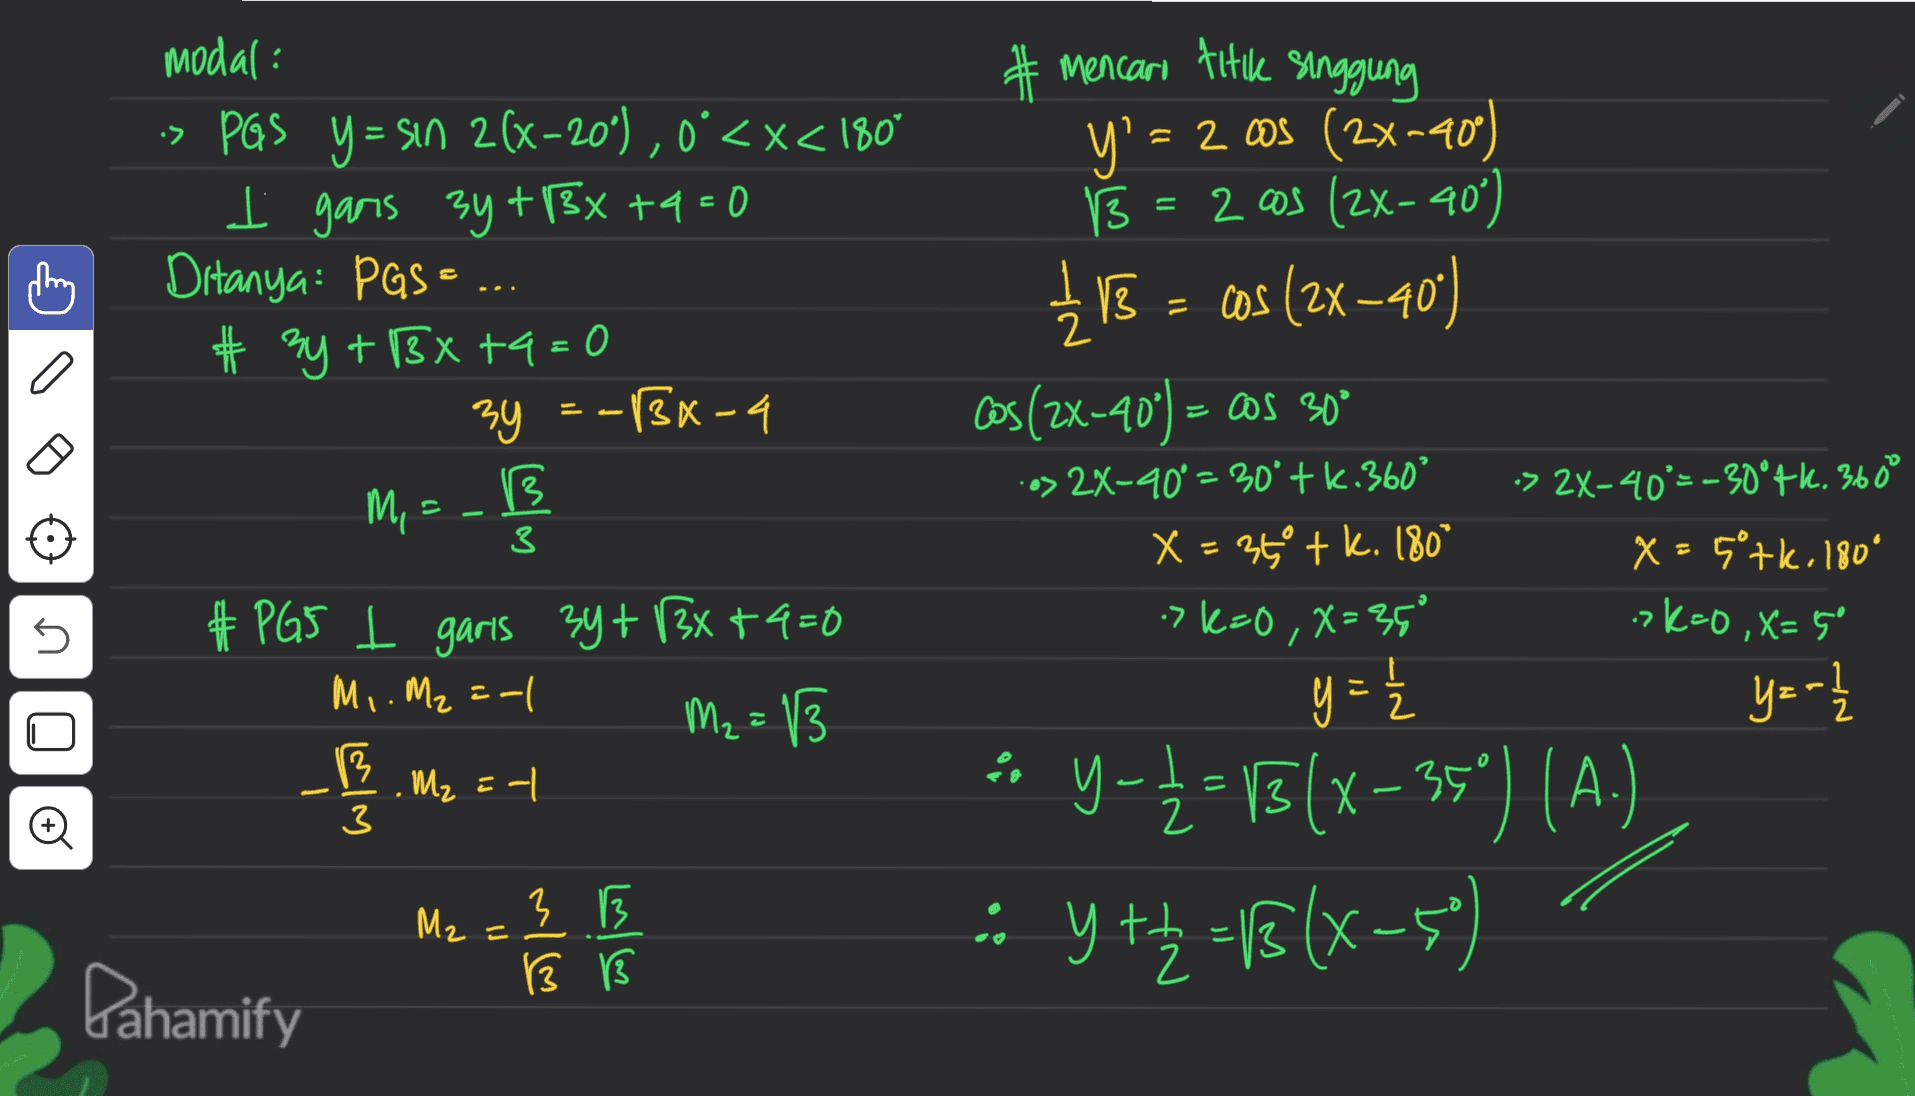 modal :
•> PGS y = sin 2(x-20°), 0° < x < 180°
⊥ garis 3y + √3x + 4 = 0
Ditanya: PGS = ...
# 3y + √3x + 4 = 0
3y = -√3x - 4
M₁ = - √3/3
# PGS ⊥ garis 3y + √3x + 4 = 0
M₁ . M₂ = -1
M₂ = √3
- √3/3 . M₂ = -1
M₂ = 3/√3 . √3/√3
# mencari titik singgung
y' = 2 cos (2x-40°)
√3 = 2 cos (2x-40°)
1/2 √3 = cos (2x-40°)
cos (2x-40°) = cos 30°
•> 2x-40° = 30° + k.360°
•> 2x-40° = -30° + k.360°
x = 35° + k.180°
x = 5° + k.180°
•> k=0, x=35°
•> k=0, x=5°
y = 1/2
y = -1/2
∴ y - 1/2 = √3 (x-35°) (A.)
∴ y + 1/2 = √3 (x-5°)
Pahamify